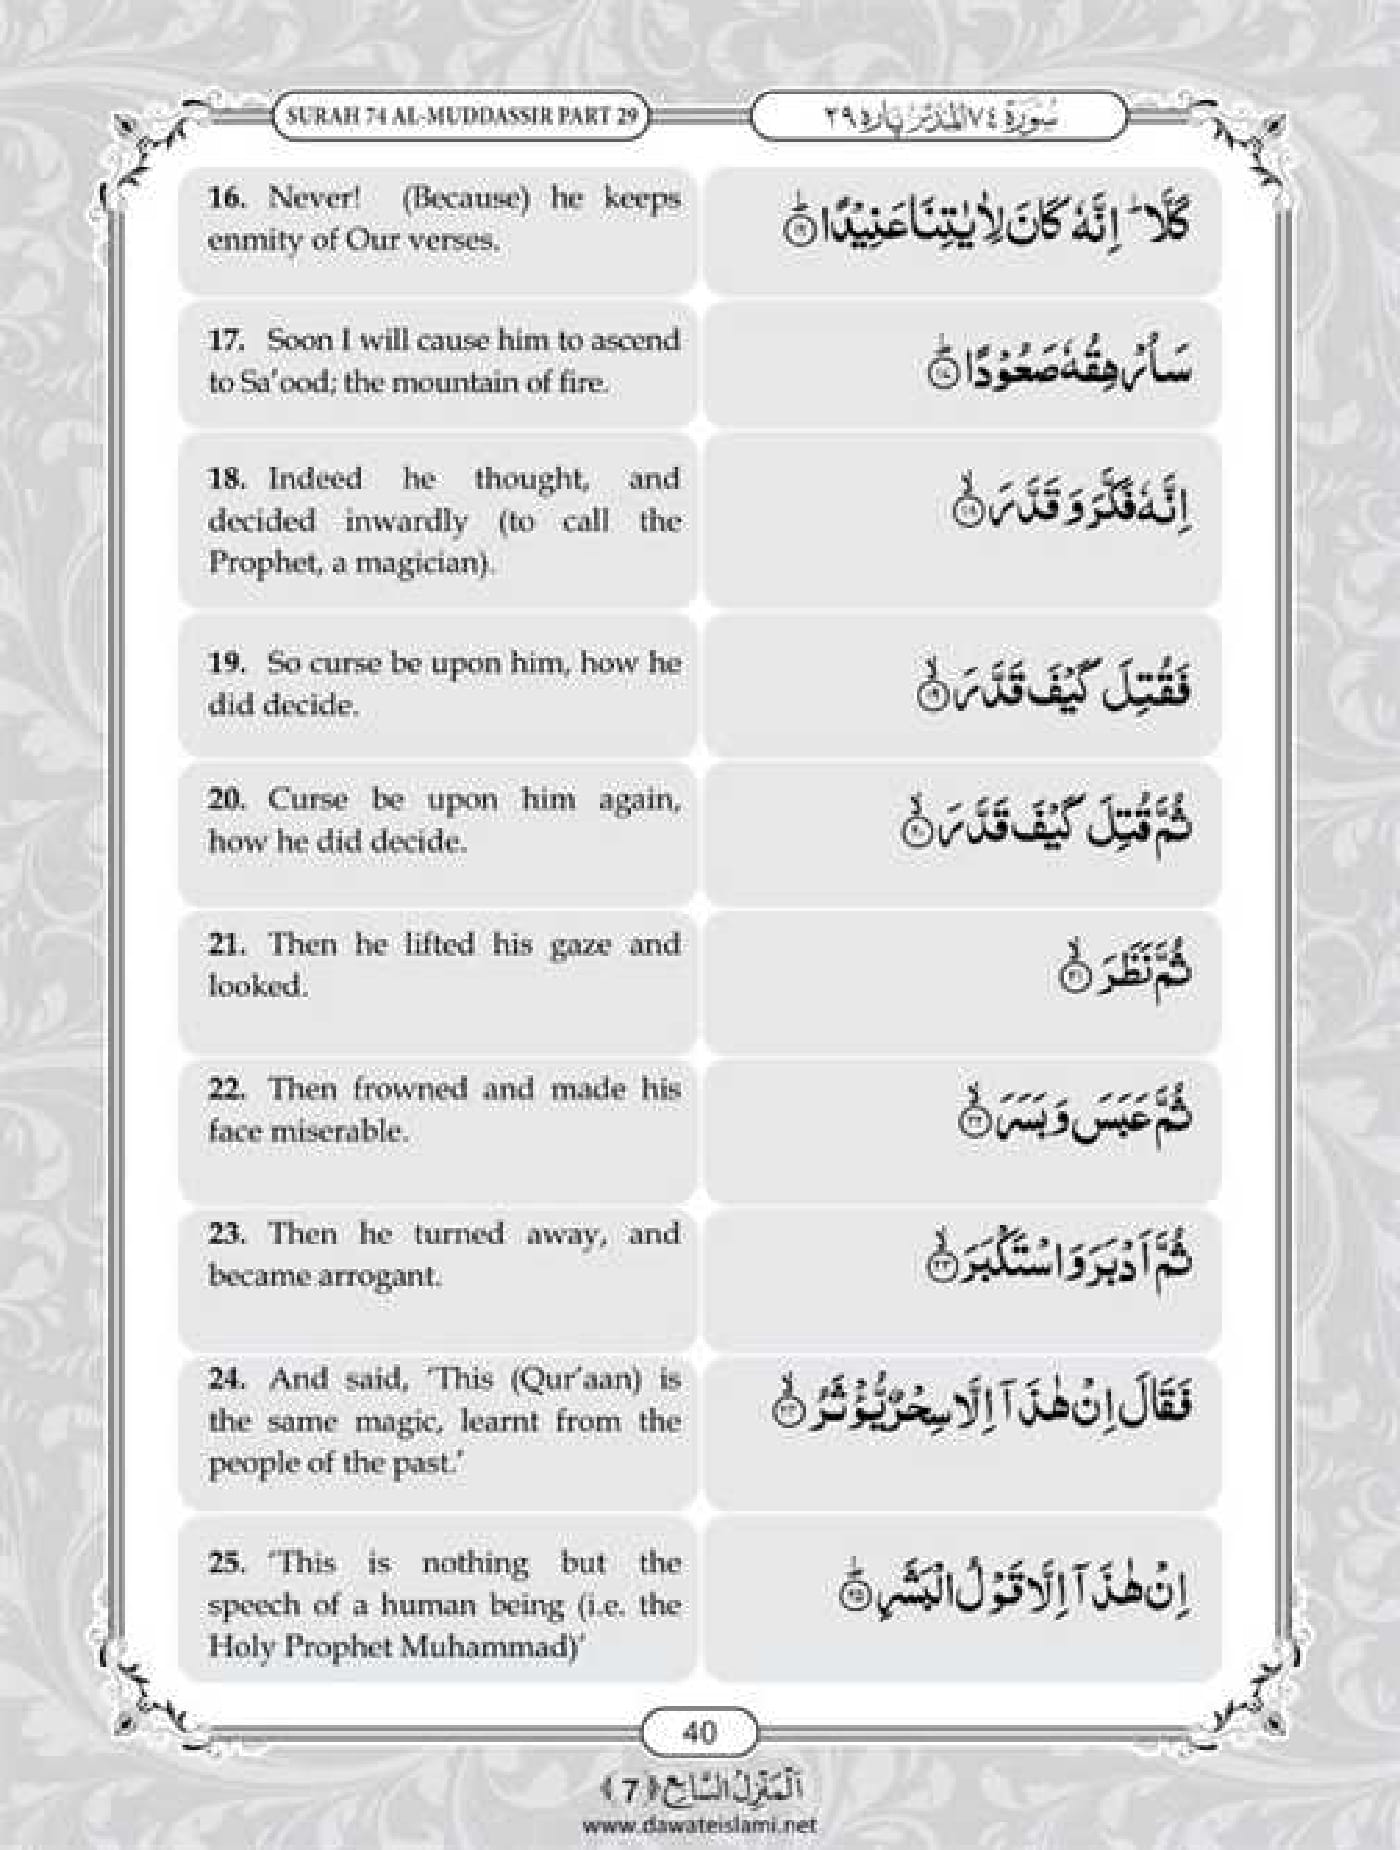 SURAH 74 AL-MUDDASSIR PART 29
سُورَة ٧٤ اَلْمُدَّثِّر پاره ٢٩
16. Never! (Because) he keeps
enmity of Our verses.
كَلَّا ؕ اِنَّهٗ كَانَ لِاٰیٰتِنَا عَنِیْدًا ؕ ﴿۱۶﴾
17. Soon I will cause him to ascend
to Sa’ood; the mountain of fire.
سَاُرْهِقُهٗ صَعُوْدًا ؕ ﴿۱۷﴾
18. Indeed he thought, and
decided inwardly (to call the
Prophet, a magician).
اِنَّهٗ فَكَّرَ وَ قَدَّرَ ۙ ﴿۱۸﴾
19. So curse be upon him, how he
did decide.
فَقُتِلَ كَیْفَ قَدَّرَ ۙ ﴿۱۹﴾
20. Curse be upon him again,
how he did decide.
ثُمَّ قُتِلَ كَیْفَ قَدَّرَ ۙ ﴿۲۰﴾
21. Then he lifted his gaze and
looked.
ثُمَّ نَظَرَ ۙ ﴿۲۱﴾
22. Then frowned and made his
face miserable.
ثُمَّ عَبَسَ وَ بَسَرَ ۙ ﴿۲۲﴾
23. Then he turned away, and
became arrogant.
ثُمَّ اَدْبَرَ وَ اسْتَكْبَرَ ۙ ﴿۲۳﴾
24. And said, ‘This (Qur’aan) is
the same magic, learnt from the
people of the past.’
فَقَالَ اِنْ هٰذَاۤ اِلَّا سِحْرٌ یُّؤْثَرُ ۙ ﴿۲۴﴾
25. ‘This is nothing but the
speech of a human being (i.e. the
Holy Prophet Muhammad)’
اِنْ هٰذَاۤ اِلَّا قَوْلُ الْبَشَرِ ؕ ﴿۲۵﴾
40
اَلْمَنْزِلُ السَّابِع ﴿7﴾
www.dawateislami.net